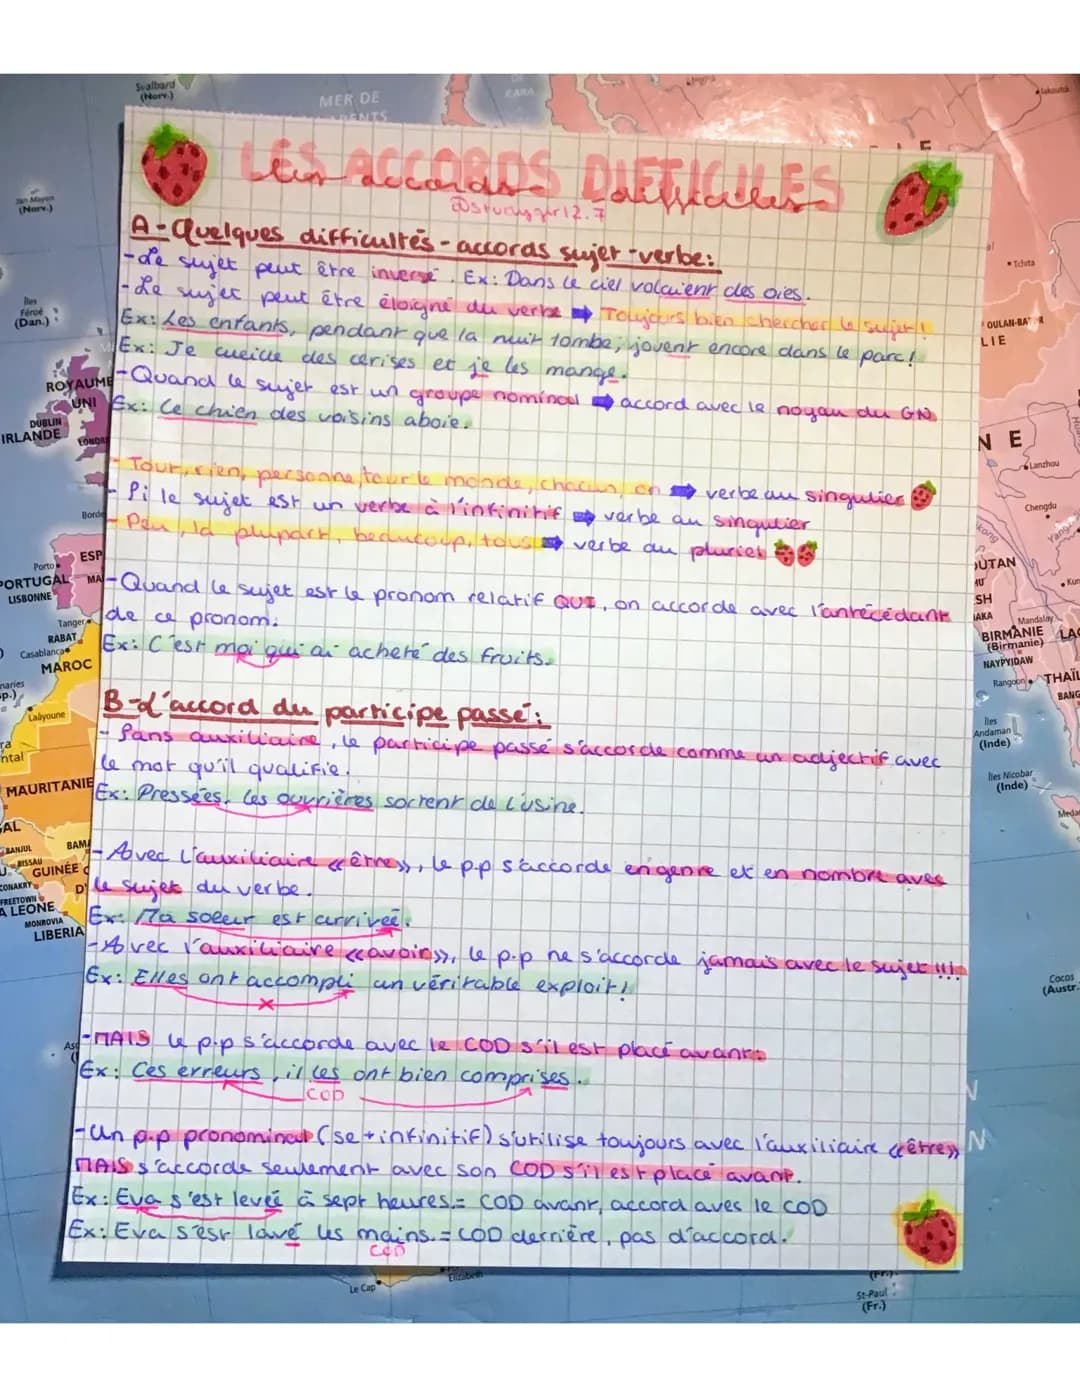 Svalbard
(Norv.)
MER DE
KARA
Iakoutsk
LES ACCORDS DIFFICILES
Les accords difficiles
@studygirl2.7
Jan Mayen
(Norv.)
A-Quelques difficultés-accords sujet-verbe:
-Le sujet peut être inversé. Ex: Dans le ciel volaient des oies.
-Le sujet peut être éloigné du verbe ➡ Toujours bien chercher le sujet!
Ex: Les enfants, pendant que la nuit tombe, jouent encore dans le parc!
Ex: Je cueille des cerises et je les mange.
-Quand le sujet est un groupe nominal ➡ accord avec le noyau du GN
Ex: Le chien des voisins aboie.
-Tout, rien, personne, tout le monde, chacun, on ➡ verbe au singulier
-Si le sujet est un verbe à l'infinitif ➡ verbe au singulier
-Peu, la plupart, beaucoup, tous ➡ verbe au pluriel
-Quand le sujet est le pronom relatif QUI, on accorde avec l'antécédant
de ce pronom.
Ex: C'est moi qui ai acheté des fruits.
B-L'accord du participe passé:
-Sans auxiliaire, le participe passé s'accorde comme un adjectif avec
le mot qu'il qualifie.
Ex: Pressées, les ouvrières sortent de l'usine.
-Avec l'auxiliaire «être», le p.p s'accorde en genre et en nombre avec
le sujet du verbe.
Ex: Ma soeur est arrivée.
-Avec l'auxiliaire «avoir», le p.p ne s'accorde jamais avec le sujet!!!
Ex: Elles ont accompli un véritable exploit!
-MAIS le p.p s'accorde avec le COD s'il est placé avant.
Ex: Ces erreurs, il les ont bien comprises.
COD
-Un p.p pronominal (se+infinitif) s'utilise toujours avec l'auxiliaire «être»
MAIS s'accorde seulement avec son COD s'il est placé avant.
Ex: Eva s'est levée à sept heures.= COD avant, accord aves le COD
Ex: Eva s'est lavé les mains.= COD derrière, pas d'accord.
COD
Îles
Féroé
(Dan.)
ROYAUME
UNI
DUBLIN
IRLANDE
Porto
ESP
PORTUGAL
LISBONNE
Tanger
RABAT
Casablanca
MAROC
Laâyoune
MAURITANIE
BANJUL
BISSAU
GUINÉE
CONAKRY
FREETOWN
MONROVIA
LIBERIA
Tchita
OULAN-BATOR
Lanzhou
Chengdu
Mandalay
BIRMANIE
(Birmanie)
NAYPYIDAW
Rangoon
Îles
Andaman
(Inde)
Îles Nicobar
(Inde)
Cocos
(Austr.
Le Cap
Elizabeth
St-Paul
(Fr.)